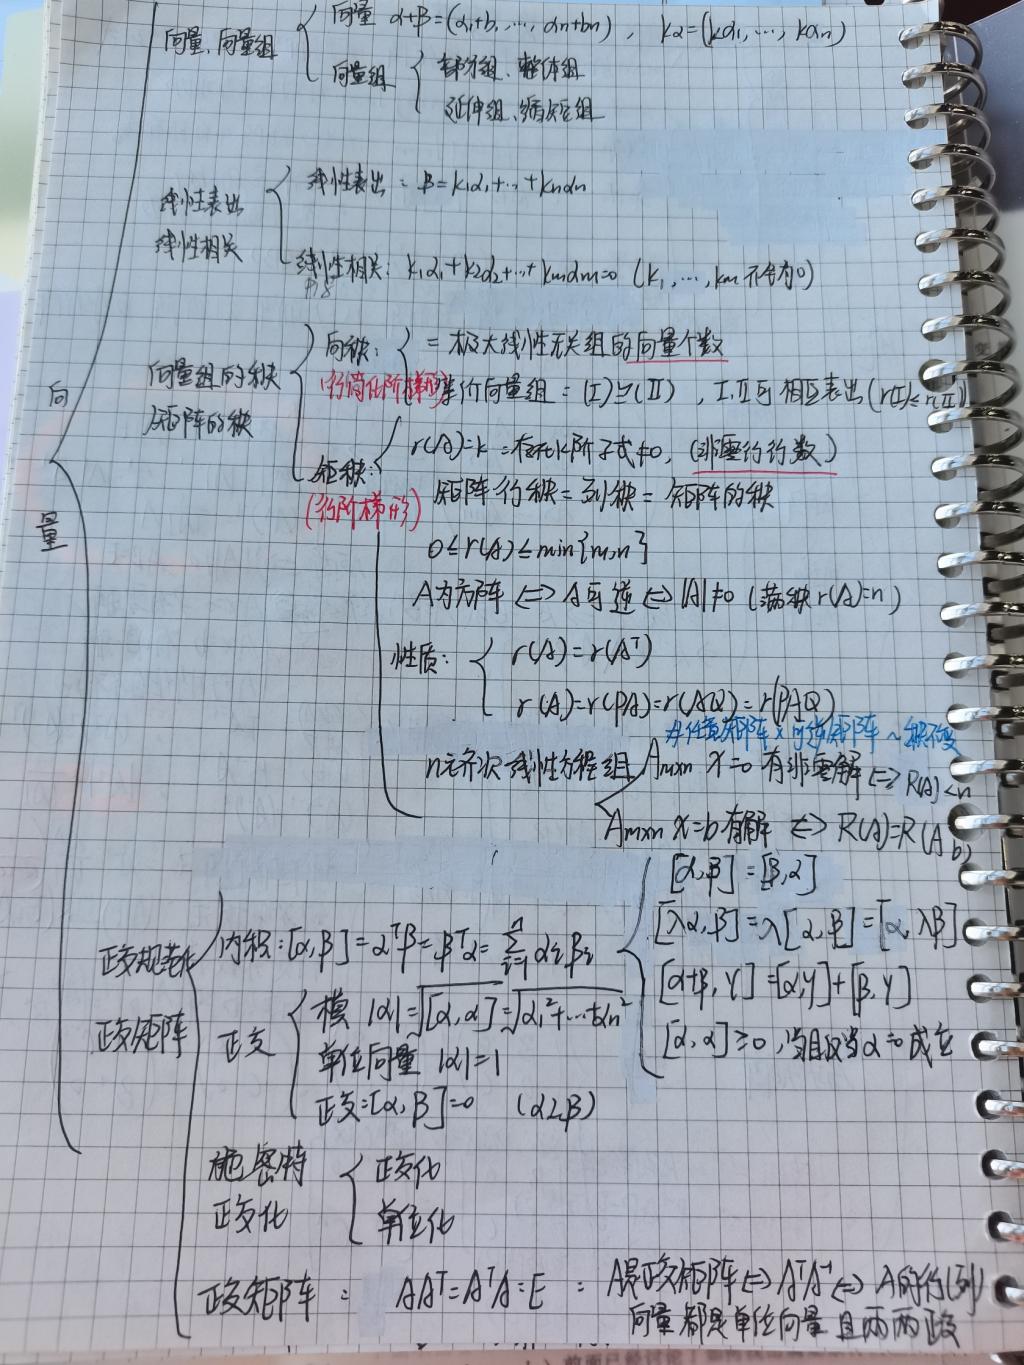 向量、向量组
向量 α+β=(α₁+b₁,…,αn+bn), kα=(kα₁,…,kαn)
向量组
部分组、整体组
延伸组、缩短组
线性表出
线性相关
线性表出:β=k₁α₁+…+knαn
线性相关:k₁α₁+k₂α₂+…+kmαm=0 (k₁,…,km不全为0)
向量
向量组的秩
矩阵的秩
向秩:
=极大线性无关组的向量个数
(行简化阶梯形)
等价向量组=(I)≌(II), I,II可相互表出(r(I)≤r(II))
矩秩:
(行阶梯形)
r(A)=k=存在k阶子式≠0, (非零行行数)
矩阵行秩=列秩=矩阵的秩
0≤r(A)≤min{m,n}
A为方阵⇔A可逆⇔|A|≠0 (满秩r(A)=n)
性质:
r(A)=r(Aᵀ)
r(A)=r(PA)=r(AQ)=r(PAQ)
任意矩阵×可逆矩阵~秩不变
n元齐次线性方程组
Am×n x=0有非零解⇔R(A)<n
Am×n x=b有解⇔R(A)=R(A b)
正交规范化
正交矩阵
内积:[α,β]=αᵀβ=βᵀα=∑ⁿᵢ₌₁αᵢβᵢ
[α,β]=[β,α]
[λα,β]=λ[α,β]=[α,λβ]
[α+β,γ]=[α,γ]+[β,γ]
[α,α]≥0,当且仅当α=0成立
正交
模 |α|=√[α,α]=√α₁²+…+αn²
单位向量 |α|=1
正交:[α,β]=0 (α⊥β)
施密特
正交化
正交化
单位化
正交矩阵: AAᵀ=AᵀA=E : A是正交矩阵⇔AᵀA⁻¹⇔A的行(列)
向量都是单位向量且两两正交